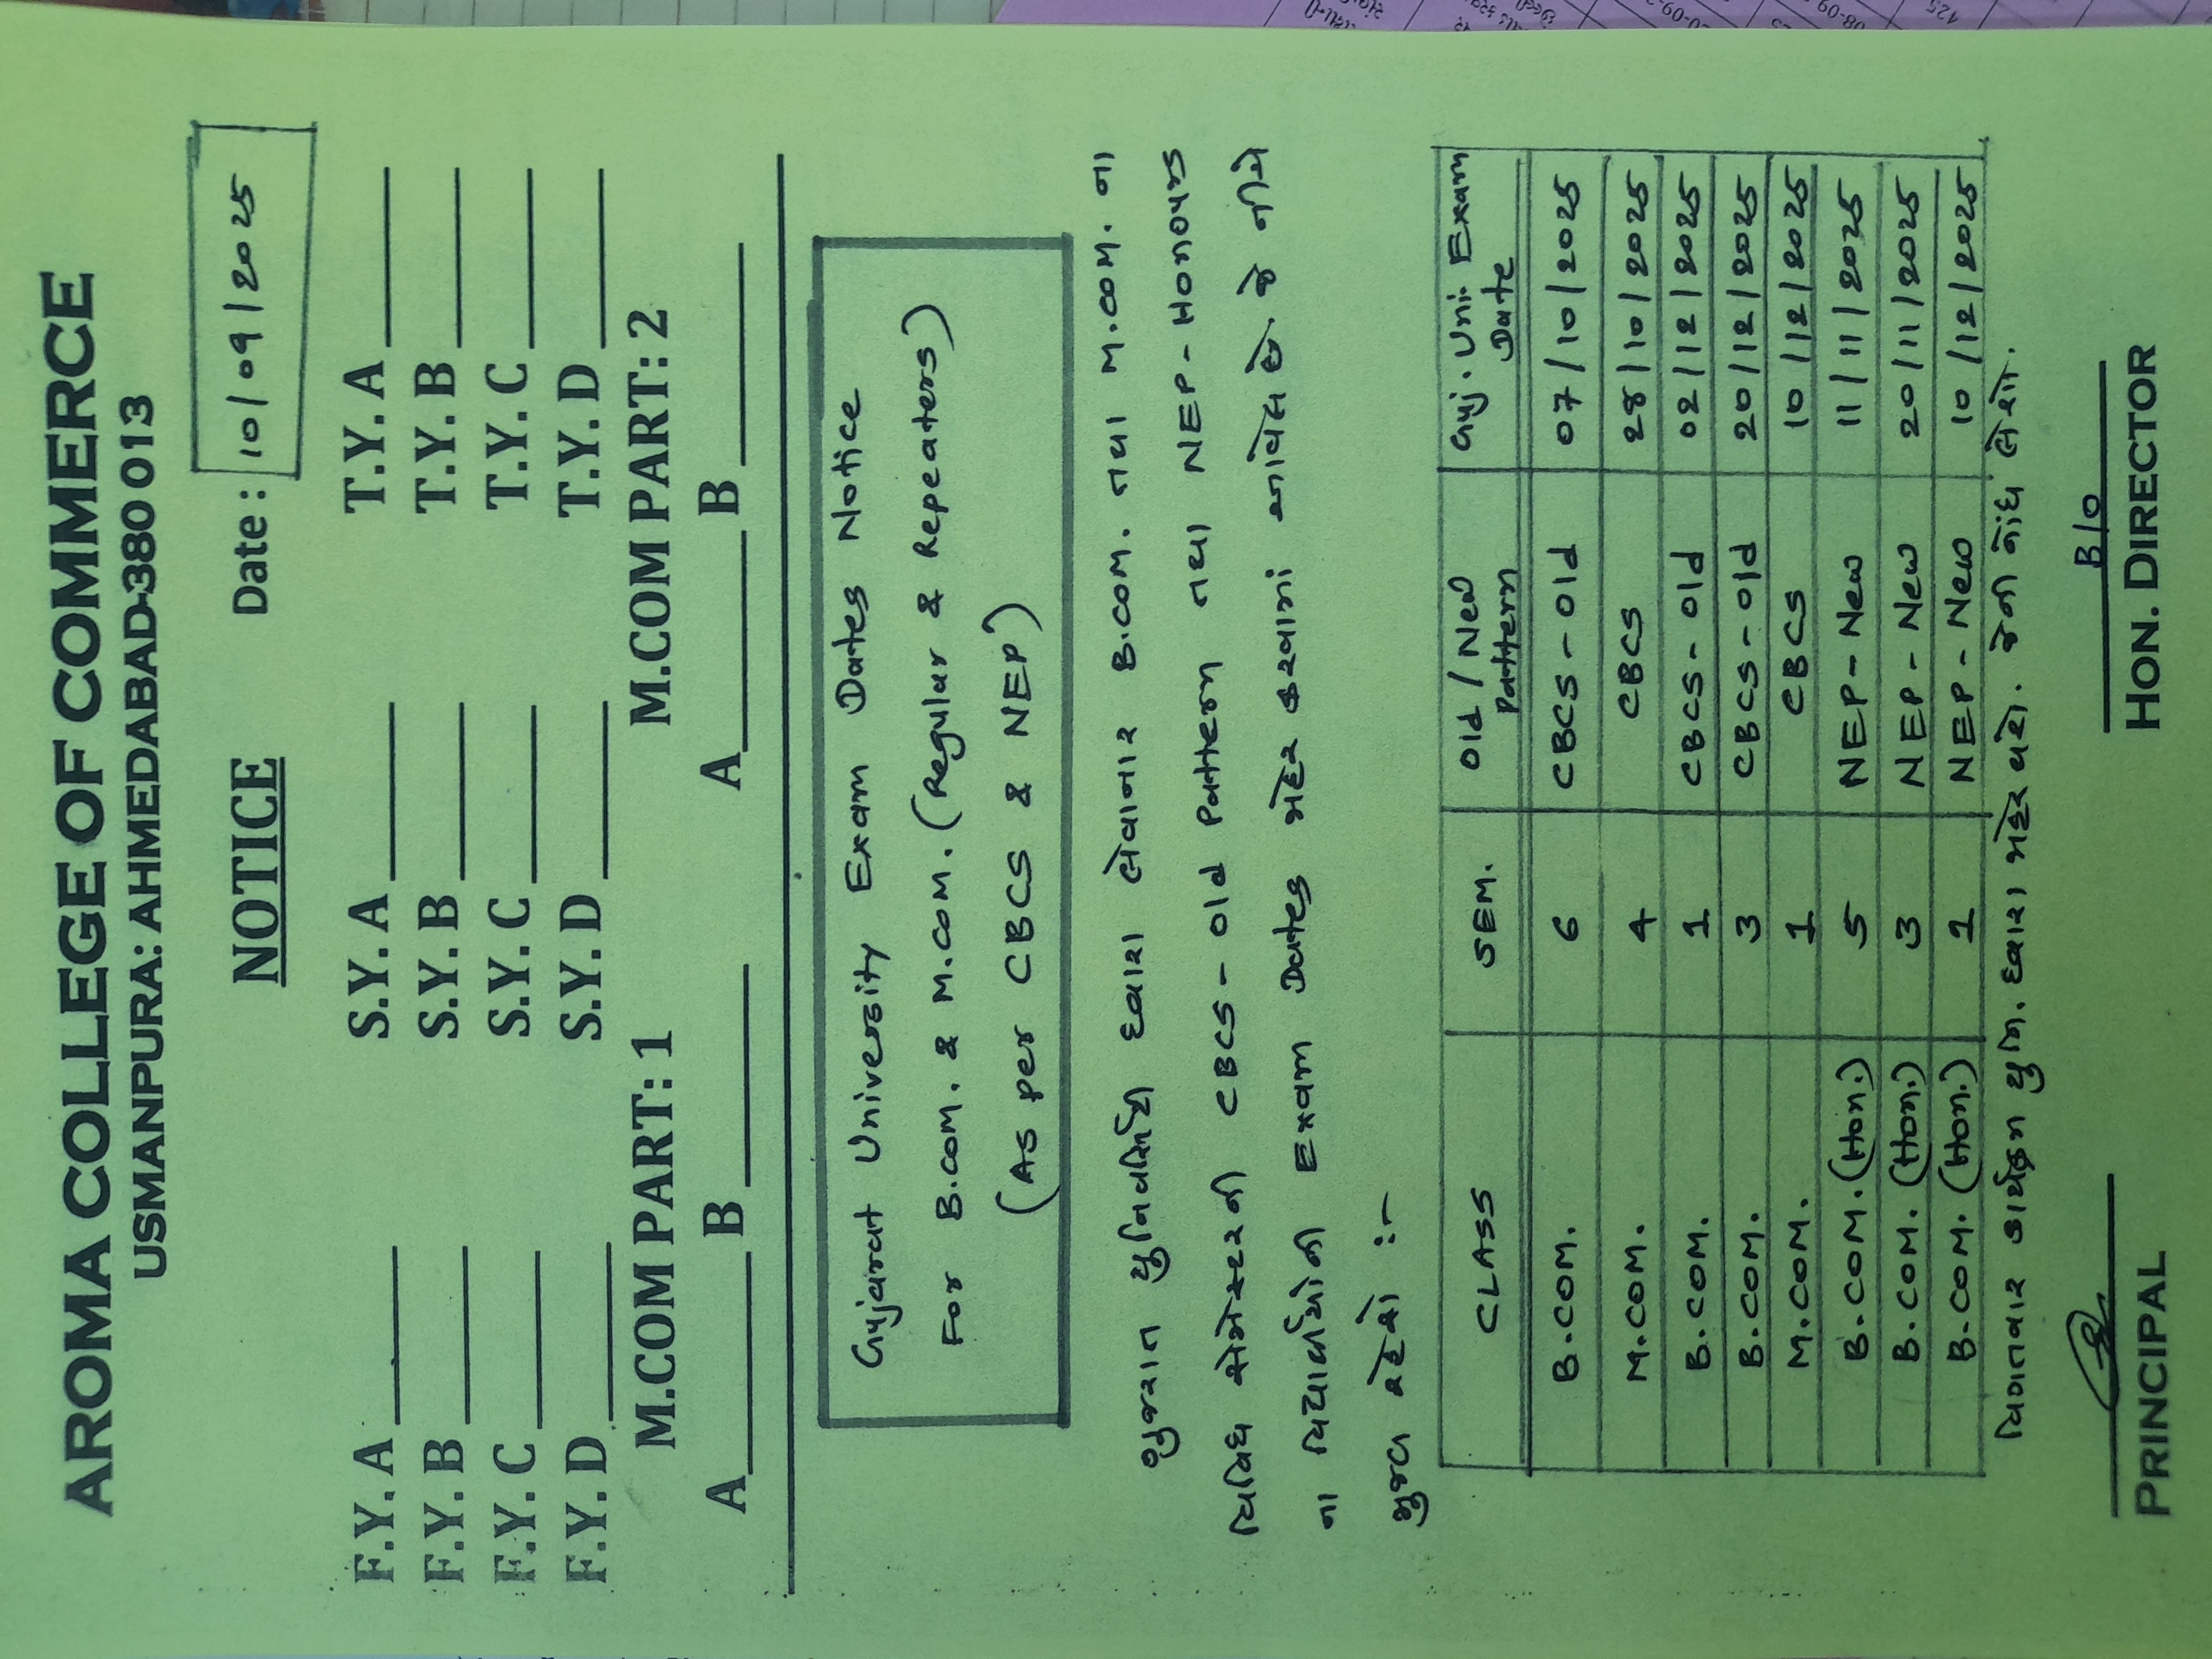 AROMA COLLEGE OF COMMERCE
USMANPURA: AHMEDABAD-380 013
NOTICE Date : 10/09/2025
F.Y. A S.Y. A T.Y. A
F.Y. B S.Y. B T.Y. B
F.Y. C S.Y. C T.Y. C
F.Y. D S.Y. D T.Y. D
M.COM PART: 1 M.COM PART: 2
A B A B
Gujarat University Exam Dates Notice
For B.com. & M.com. (Regular & Repeaters)
(As per CBCS & NEP)
ગુજરાત યુનિવર્સિટી દ્વારા લેવાનાર B.COM. તથા M.COM. ના
વિવિધ સેમેસ્ટરની CBCS - Old Pattern તથા NEP - Honours
ના વિદ્યાર્થીઓની Exam Dates જાહેર કરવામાં આવેલ છે. જે નીચે
મુજબ રહેશે :-
CLASS SEM. Old / New Pattern Guj. Uni. Exam Date
B.COM. 6 CBCS - Old 07/10/2025
M.COM. 4 CBCS 28/10/2025
B.COM. 1 CBCS - Old 02/12/2025
B.COM. 3 CBCS - Old 20/12/2025
M.COM. 1 CBCS 10/12/2025
B.COM. (Hon.) 5 NEP - New 11/11/2025
B.COM. (Hon.) 3 NEP - New 20/11/2025
B.COM. (Hon.) 1 NEP - New 10/12/2025
વિગતવાર કાર્યક્રમ યુનિ. દ્વારા જાહેર થશે. જેની નોંધ લેશો.
B/O
PRINCIPAL HON. DIRECTOR